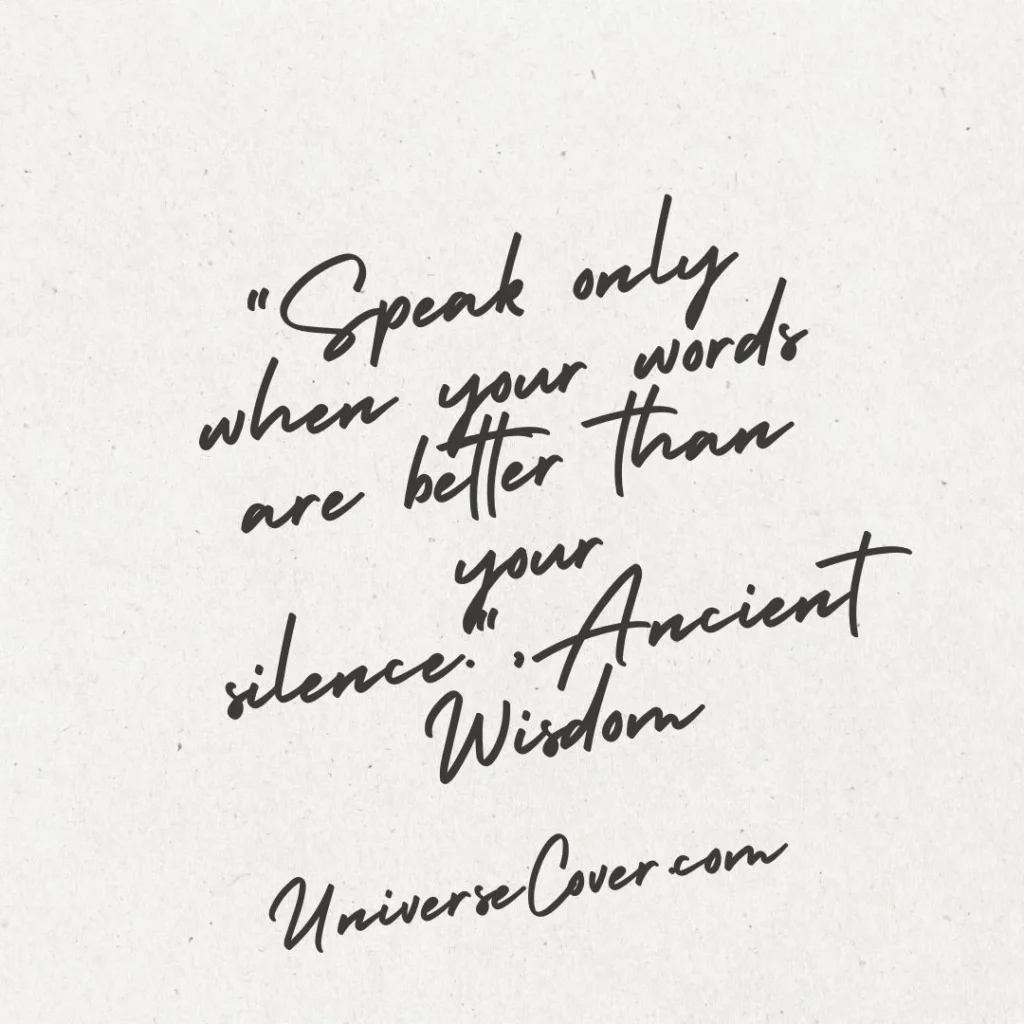 "Speak only
when your words
are better than
your
silence.", Ancient
Wisdom
UniverseCover.com